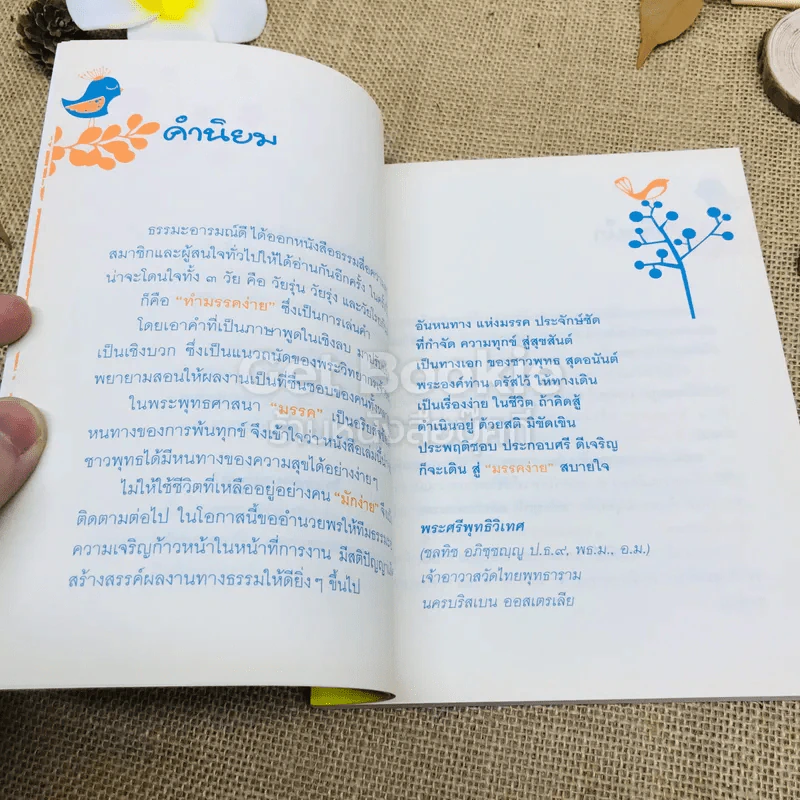 คำนิยม
ธรรมะอารมณ์ดี ได้ออกหนังสือธรรมสื่อความ
สมาชิกและผู้สนใจทั่วไปให้ได้อ่านกันอีกครั้ง
น่าจะโดนใจทั้ง ๓ วัย คือ วัยรุ่น วัยรุ่ง และวัย
ก็คือ “ทำมรรคง่าย” ซึ่งเป็นการเล่นคำ
โดยเอาคำที่เป็นภาษาพูดในเชิงลบ
เป็นเชิงบวก ซึ่งเป็นแนวถนัดของพระวิทยากร
พยายามสอนให้ผลงานเป็นที่ชื่นชอบของคนทั้ง
ในพระพุทธศาสนา “มรรค” เป็น
หนทางของการพ้นทุกข์ จึงเข้าใจว่า หนังสือเล่มนี้
ชาวพุทธได้มีหนทางของความสุขได้อย่างง่ายๆ
ไม่ให้ใช้ชีวิตที่เหลืออยู่อย่างคน “มักง่าย”
ติดตามต่อไป ในโอกาสนี้ขออำนวยพรให้ทีมธรรมะ
ความเจริญก้าวหน้าในหน้าที่การงาน มีสติปัญญา
สร้างสรรค์ผลงานทางธรรมให้ดียิ่งๆ ขึ้นไป
อันหนทาง แห่งมรรค ประจักษ์ชัด
ที่กำจัด ความทุกข์ สู่สุขสันต์
เป็นทางเอก ของชาวพุทธ สุดอนันต์
พระองค์ท่าน ตรัสไว้ ให้ทางเดิน
เป็นเรื่องง่าย ในชีวิต ถ้าคิดสู้
ดำเนินอยู่ ด้วยสติ มิขัดเขิน
ประพฤติชอบ ประกอบศรี ดีเจริญ
ก็จะเดิน สู่ “มรรคง่าย” สบายใจ
พระศรีพุทธิวิเทศ
(ชลทิช อภิชฺชญฺญู ป.ธ.๙, พธ.ม., อ.ม.)
เจ้าอาวาสวัดไทยพุทธาราม
นครบริสเบน ออสเตรเลีย
Get Bookie
ร้านหนังสือมือที่